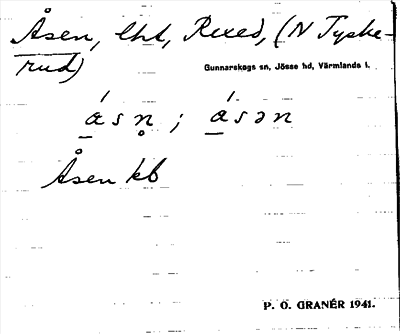 Åsen, lht, Rexed, (N Tyske-
rud)
Gunnarskogs sn, Jösse hd, Värmlands l.
á̱ s n̥ ; á̱ s ə n
Åsen kb
P. O. GRANÉR 1941.